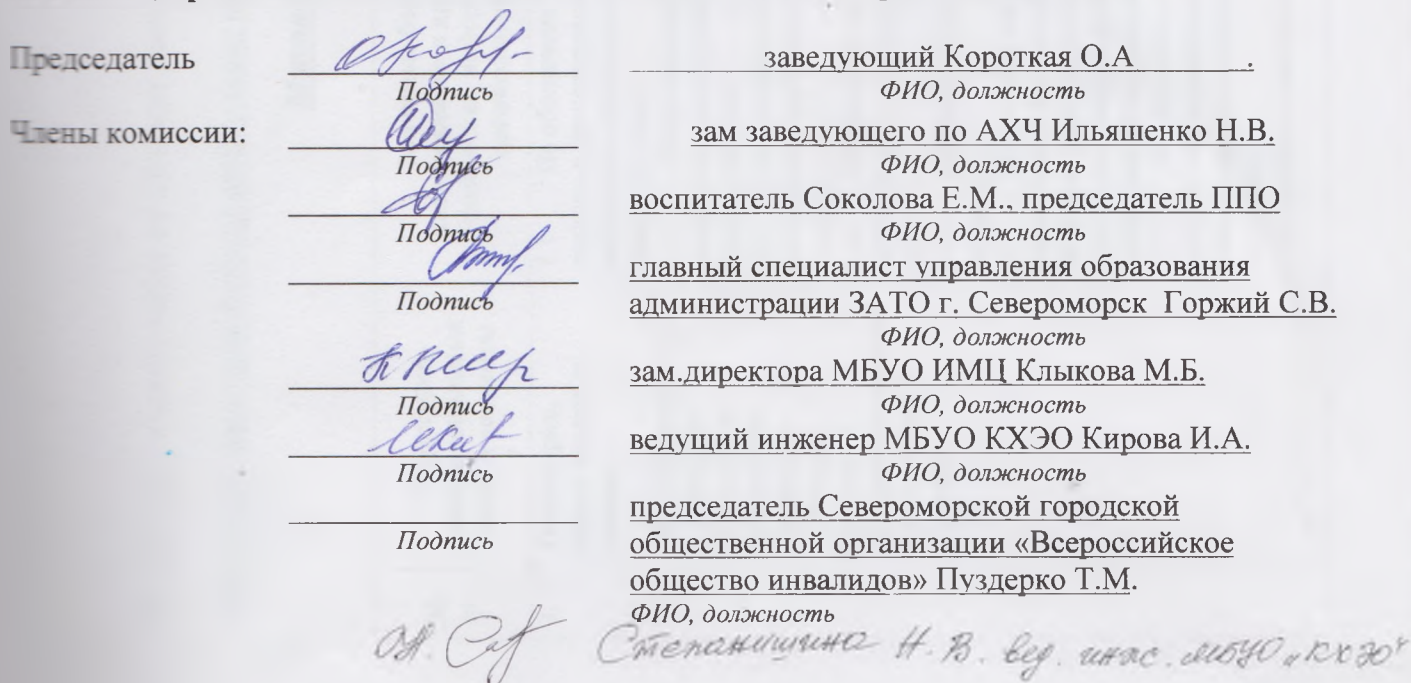 Председатель заведующий Короткая О.А .
Подпись ФИО, должность
Члены комиссии: зам заведующего по АХЧ Ильяшенко Н.В.
Подпись ФИО, должность
воспитатель Соколова Е.М., председатель ППО
Подпись ФИО, должность
главный специалист управления образования
Подпись администрации ЗАТО г. Североморск Горжий С.В.
ФИО, должность
зам.директора МБУО ИМЦ Клыкова М.Б.
Подпись ФИО, должность
ведущий инженер МБУО КХЭО Кирова И.А.
Подпись ФИО, должность
председатель Североморской городской
Подпись общественной организации «Всероссийское
общество инвалидов» Пуздерко Т.М.
ФИО, должность
Степанишина Н.В. вед. инж. МБУО „КХЭО"